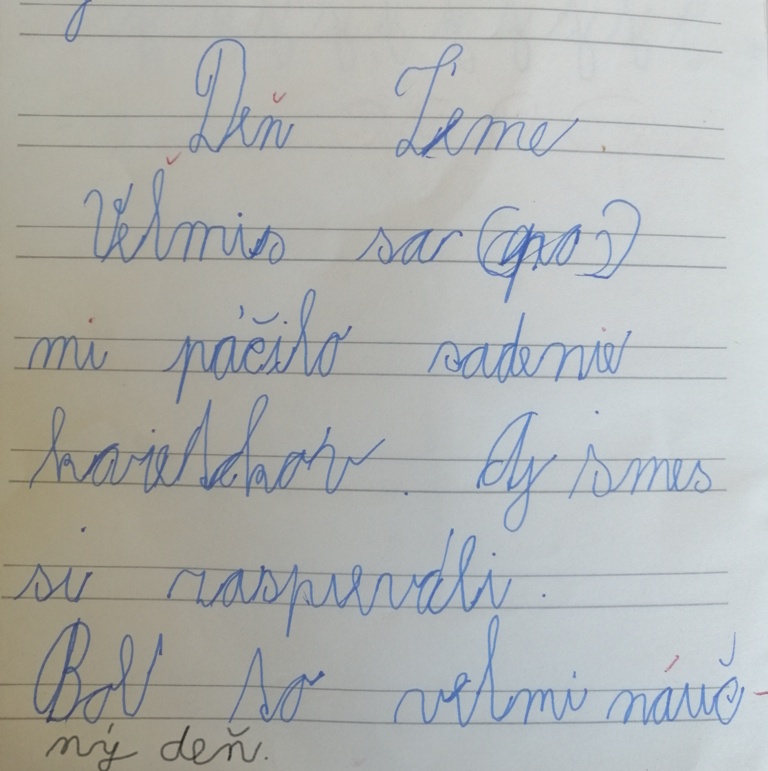 Deň Zeme.
Veľmi sa (po)
mi páčilo sadenie
kvietkov. Aj sme
si zaspievali.
Bol to veľmi náuč-
ný deň.